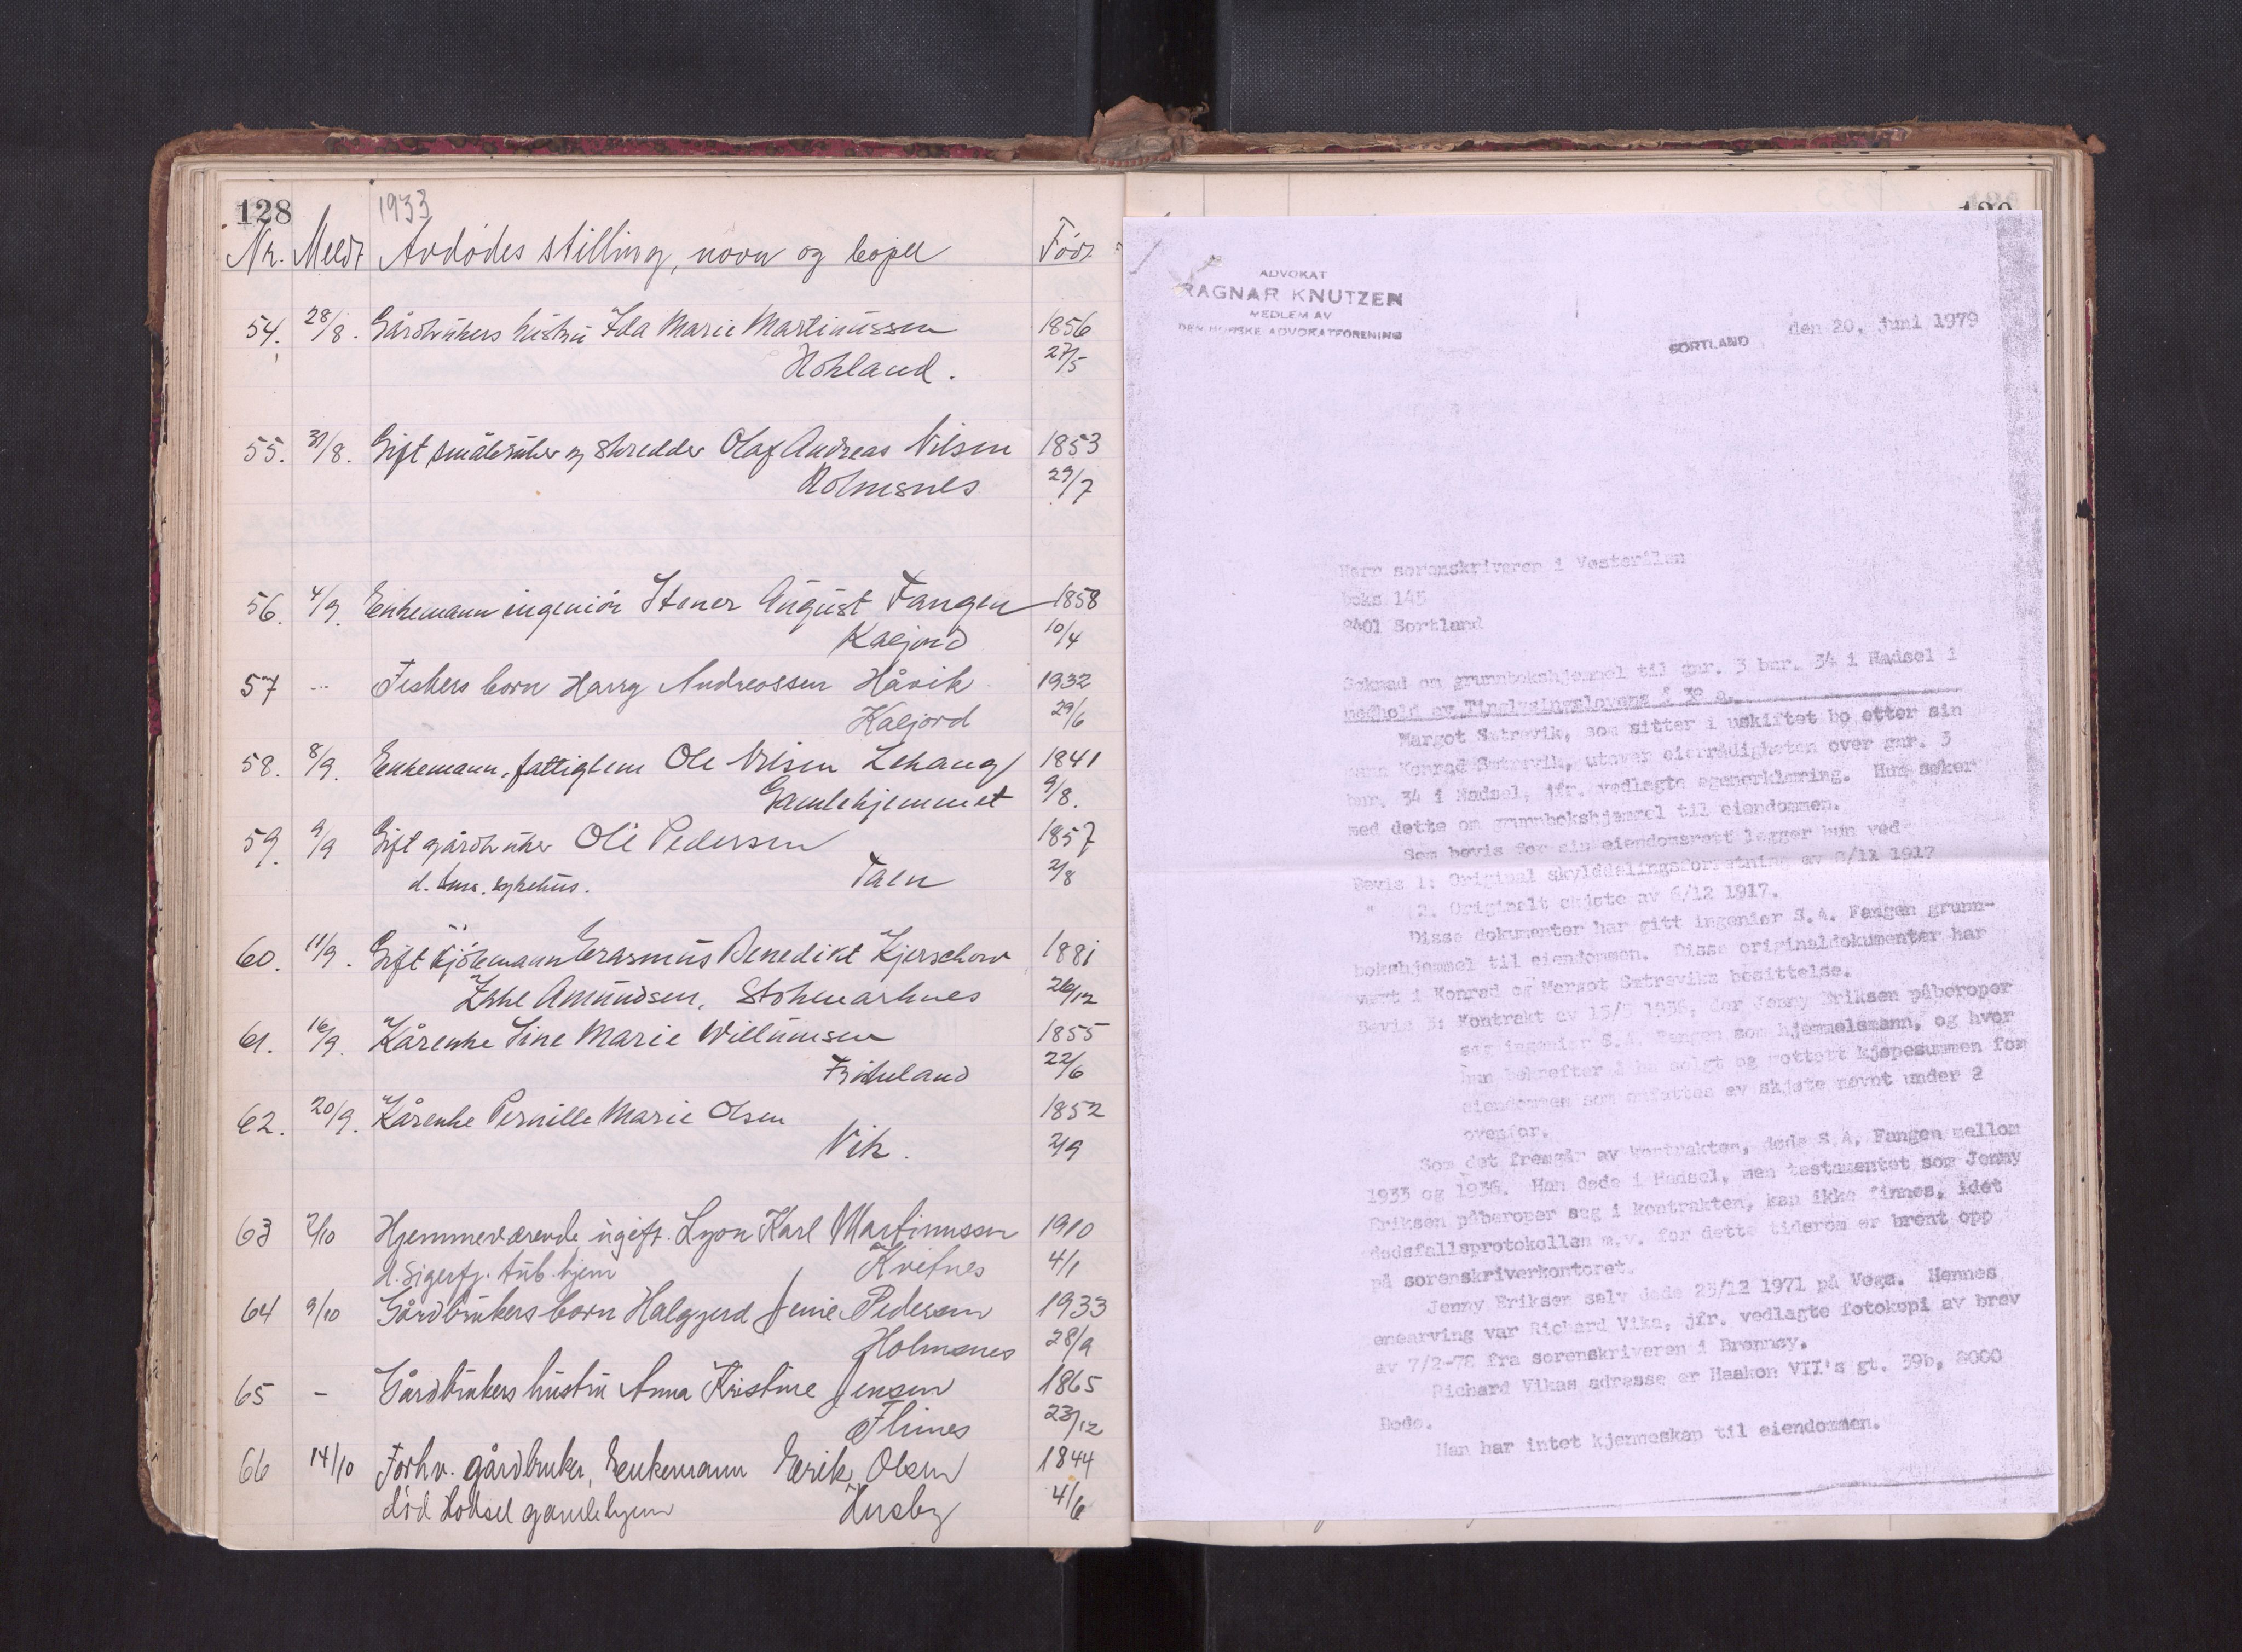 128
1933
Nr. Meldt Avdødes stilling, navn og bopel Født
54. 28/8. Gårdbrukers hustru Ida Marie Martinussen 1856
Hokland. 27/5
55. 31/8. Gift småbruker og skredder Olaf Andreas Nilsen 1853
Holmsnes 29/7
56. 4/9. Enkemann ingeniør Stener August Fangen 1858
Kaljord 10/4
57 -"- Fiskers barn Harry Andreassen Håvik 1932
Kaljord 29/6
58. 8/9. Enkemann, fattiglem Ole Nilsen Lekang 1841
Gamlehjemmet 9/8.
59. 9/9 Gift gårdbruker Ole Pedersen 1857
d. sykehus. Taen 2/8
60. 11/9. Gift sjømann Erasmus Benedikt Kjerschow 1881
Zahl Amundsen, Stokmarknes 26/12
61. 16/9. Kårenke Sine Marie Willumsen 1855
Friheland 22/6
62. 20/9. Kårenke Pernille Marie Olsen 1852
Vik. 2/9
63 2/10 Hjemmeværende ugift. Lyon Karl Martinussen 1910
d. Sigerfj. tub. hjem Kvitnes 4/1
64 9/10 Gårdbrukers barn Halgjerd Jenie Pedersen 1933
Holmsnes 28/9
65 - Gårdbrukers hustru Anna Kristine Jensen 1865
Flines 23/12
66 14/10 Forhv. gårdbruker, Enkemann Erik Olsen 1844
død Hadsel gamlehjem Husby 4/6
ADVOKAT
RAGNAR KNUTZEN
MEDLEM AV
DEN NORSKE ADVOKATFORENING
SORTLAND, den 20. juni 1979
Herr sorenskriveren i Vesterålen
boks 145
8401 Sortland
Søknad om grunnbokshjemmel til gnr. 3 bnr. 34 i Hadsel i
medhold av Tinglysingslovens § 38 a.
Margot Sætrevik, som sitter i uskiftet bo etter sin
mann Konrad Sætrevik, utøver eierrådigheten over gnr. 3
bnr. 34 i Hadsel, jfr. vedlagte egenerklæring. Hun søker
med dette om grunnbokshjemmel til eiendommen.
Som bevis for sin eiendomsrett legger hun ved
Bevis 1: Original skylddelingsforretning av 8/11 1917
" 2. Originalt skjøte av 6/12 1917.
Disse dokumenter har gitt ingeniør S.A. Fangen grunn-
bokshjemmel til eiendommen. Disse originaldokumenter har
vært i Konrad og Margot Sætreviks besittelse.
Bevis 3: Kontrakt av 15/5 1936, der Jenny Eriksen påberoper
seg ingeniør S.A. Fangen som hjemmelsmann, og hvor
hun bekrefter å ha solgt og mottatt kjøpesummen for
eiendommen som omfattes av skjøte nevnt under 2
ovenfor.
Som det fremgår av kontrakten, døde S.A. Fangen mellom
1933 og 1936. Han døde i Hadsel, men testamentet som Jenny
Eriksen påberoper seg i kontrakten, kan ikke finnes, idet
dødsfallsprotokollen m.v. for dette tidsrom er brent opp
på sorenskriverkontoret.
Jenny Eriksen selv døde 23/12 1971 på Vega. Hennes
enearving var Richard Vika, jfr. vedlagte fotokopi av brev
av 7/2-78 fra sorenskriveren i Brønnøy.
Richard Vikas adresse er Haakon VII's gt. 39b, 8000
Bodø.
Han har intet kjennskap til eiendommen.